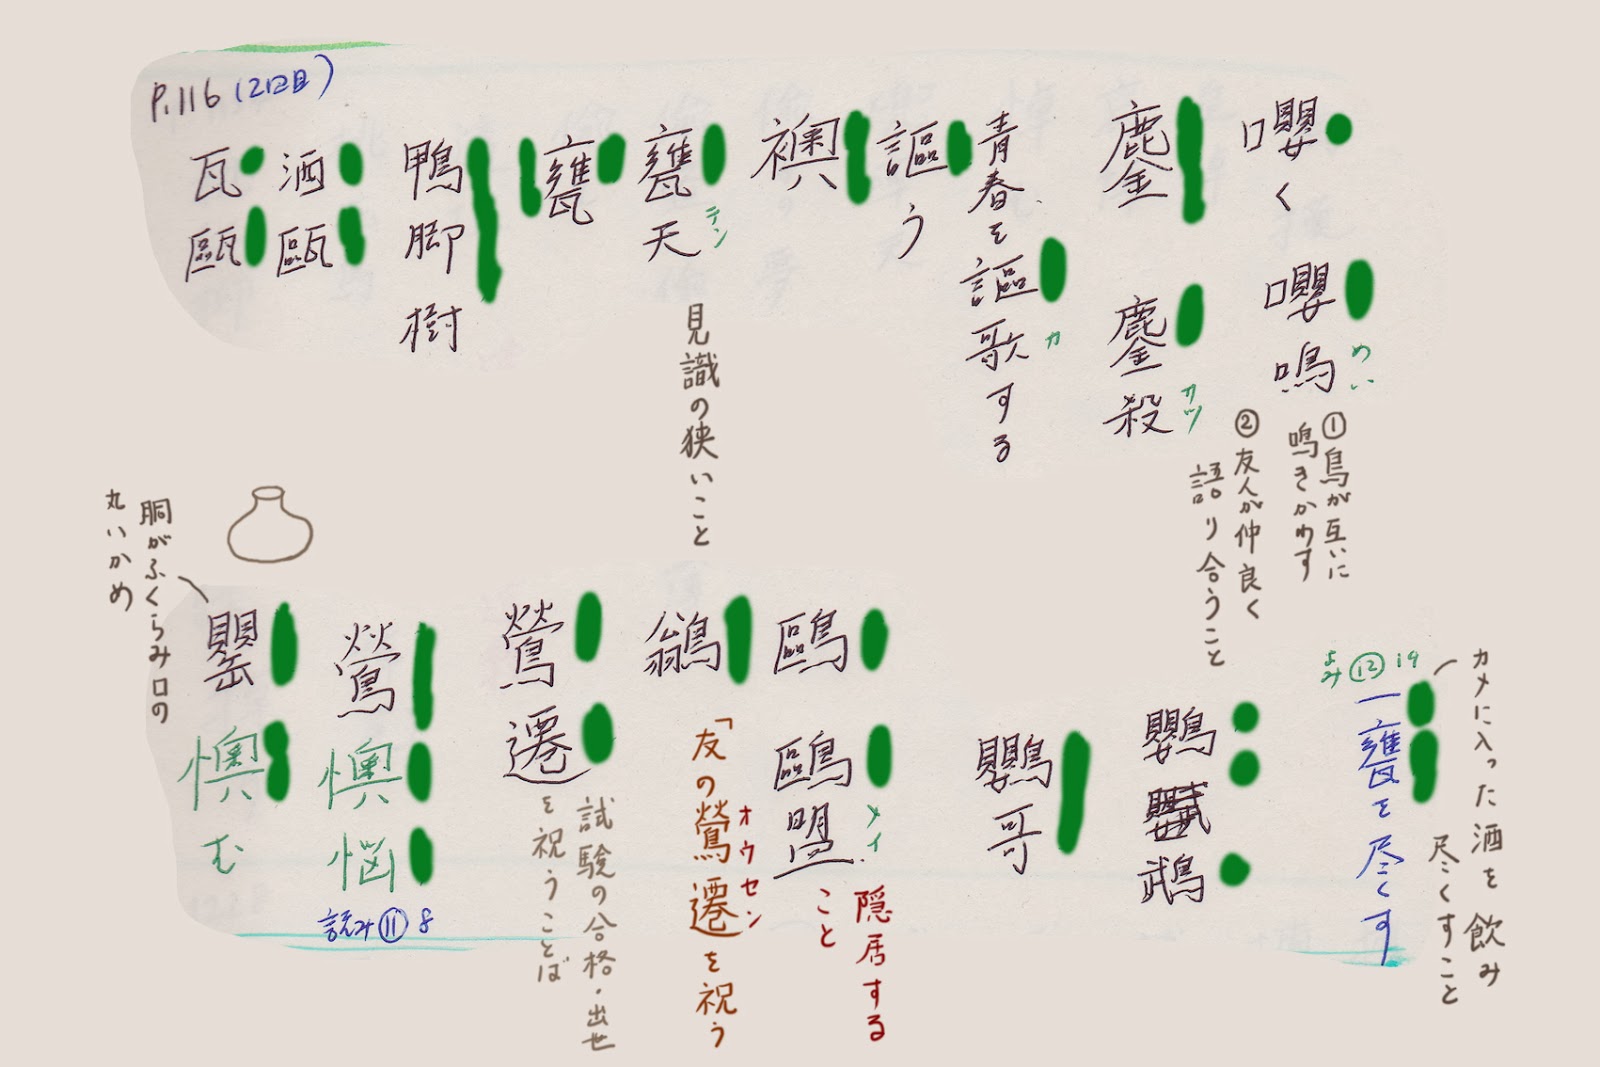 P.116(2回目)
嚶く
嚶鳴
めい
①鳥が互いに
鳴きかわす
②友人が仲良く
語り合うこと
鏖
鏖殺
サツ
青春を謳歌する
カ
謳う
襖
甕天
テン
見識の狭いこと
甕
鴨脚樹
酒甌
瓦甌
カメに入った酒を飲み
尽くすこと
よみ⑫19
一甕を尽くす
鸚
鵡
鸚哥
鷗
鷗盟
メイ
隠居する
こと
鶲
「友の鶯遷を祝う
オウセン
鶯遷
試験の合格・出世
を祝うことば
鶯
懊悩
読み⑪8
罌
胴がふくらみ口の
丸いかめ
懊む